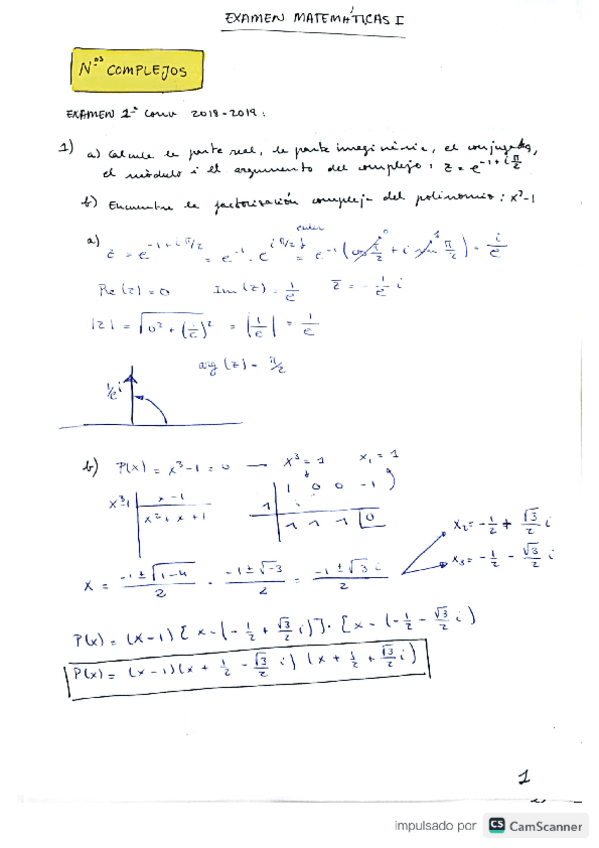 EXAMEN MATEMÁTICAS I
Nºˢ COMPLEJOS
EXAMEN 1ª Conv 2018-2019:
1) a) Calcule la parte real, la parte imaginaria, el conjugado,
el módulo i el argumento del complejo: z = e^(-1+iπ/2)
b) Encuentre la factorización compleja del polinomio: x³-1
euler
a) z = e^(-1+iπ/2) = e^-1 · e^(iπ/2) = e^-1 (cos π/2 + i sin π/2) = i/e
Re(z) = 0 Im(z) = 1/e z̄ = - 1/e i
|z| = √(0² + (1/e)²) = |1/e| = 1/e
arg(z) = π/2
1/e i
b) P(x) = x³-1 = 0 — x³ = 1 x₁ = 1
1 0 0 -1
x³-1 | x-1
1
x²+x+1
1 1 1 |0
x = (-1±√(1-4))/2 = (-1±√-3)/2 = (-1±√3 i)/2
x₂ = -1/2 + √3/2 i
x₃ = -1/2 - √3/2 i
P(x) = (x-1) [x-(-1/2 + √3/2 i)] · [x-(-1/2 - √3/2 i)
P(x) = (x-1)(x + 1/2 - √3/2 i) (x + 1/2 + √3/2 i)
1
impulsado por CS CamScanner